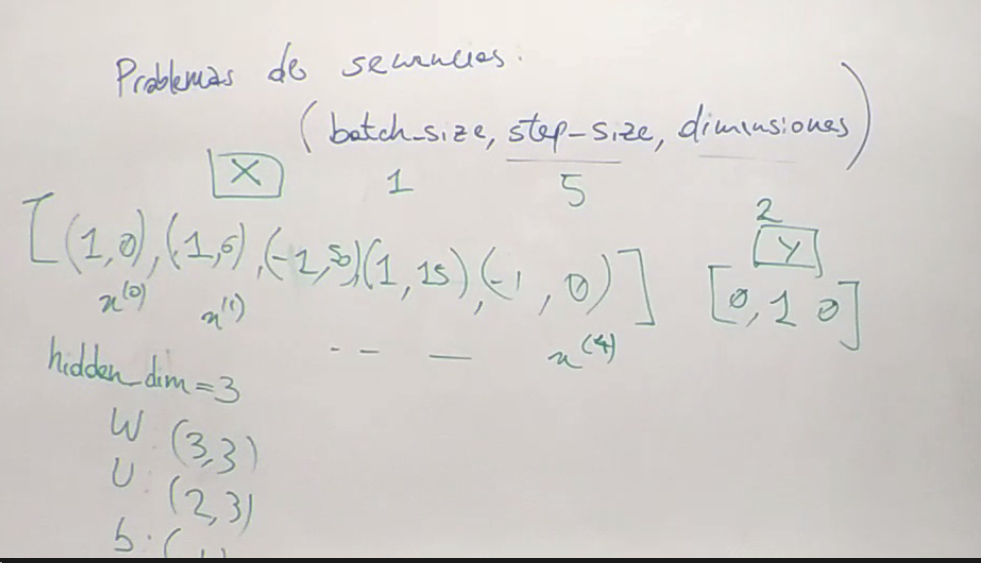 Problemas de secuencias.
(batch_size, step-size, dimensiones)
X 1 5 2
[(1,0),(1,6),(-1,30)(1,15),(-1,0)] Y
[0,1 0]
x^(0) x^(1) -- — x^(4)
hidden_dim=3
W: (3,3)
U: (2,3)
b: (